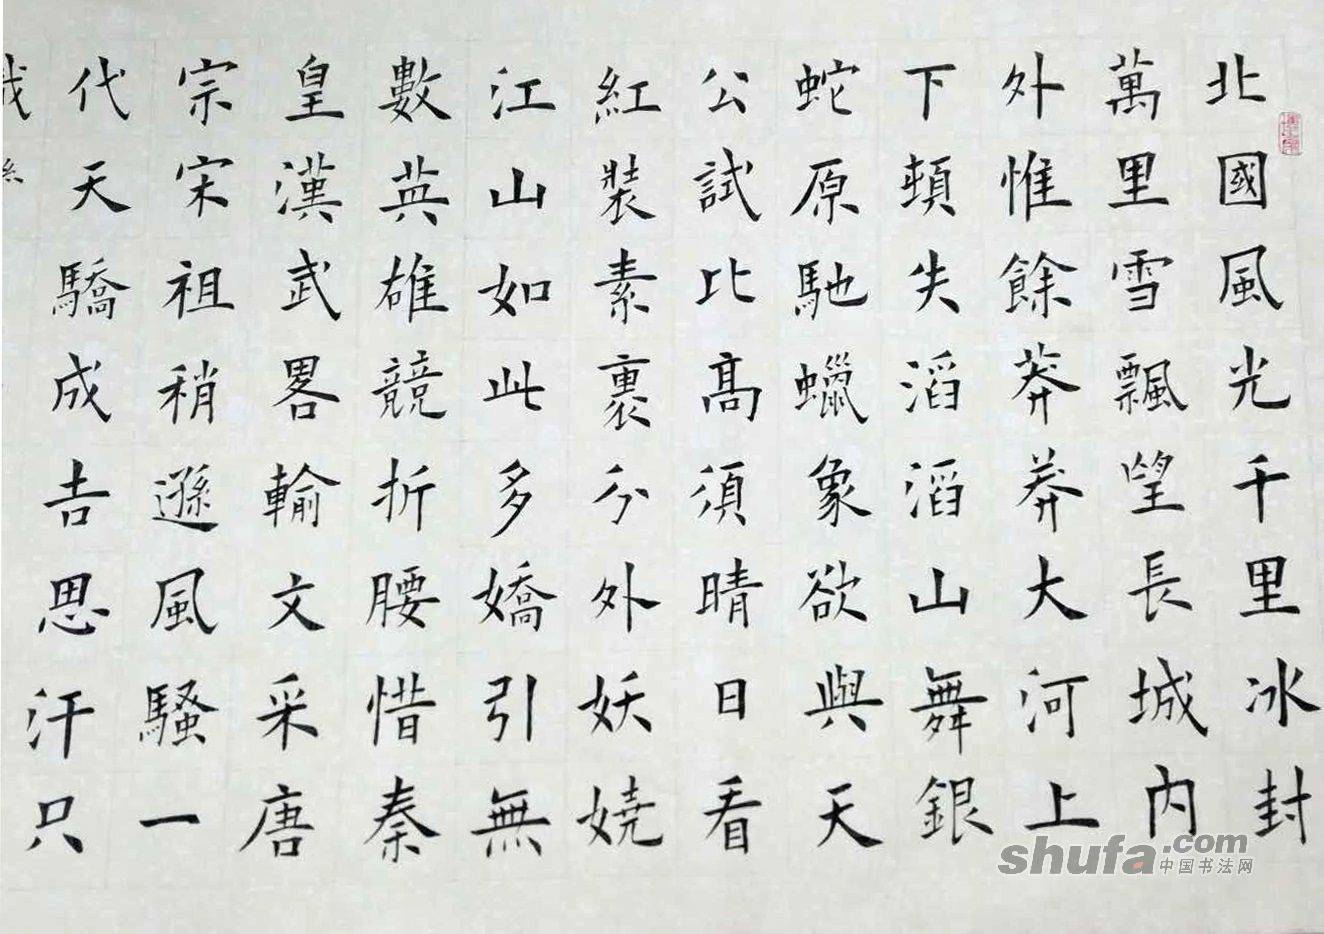 北國風光千里冰封
萬里雪飄望長城内
外惟餘莽莽大河上
下頓失滔滔山舞銀
蛇原馳蠟象欲與天
公試比髙須晴日看
紅裝素裹分外妖嬈
江山如此多嬌引無
數英雄競折腰惜秦
皇漢武畧輸文采唐
宗宋祖稍遜風騷一
代天驕成吉思汗只
shufa.com
中国书法网